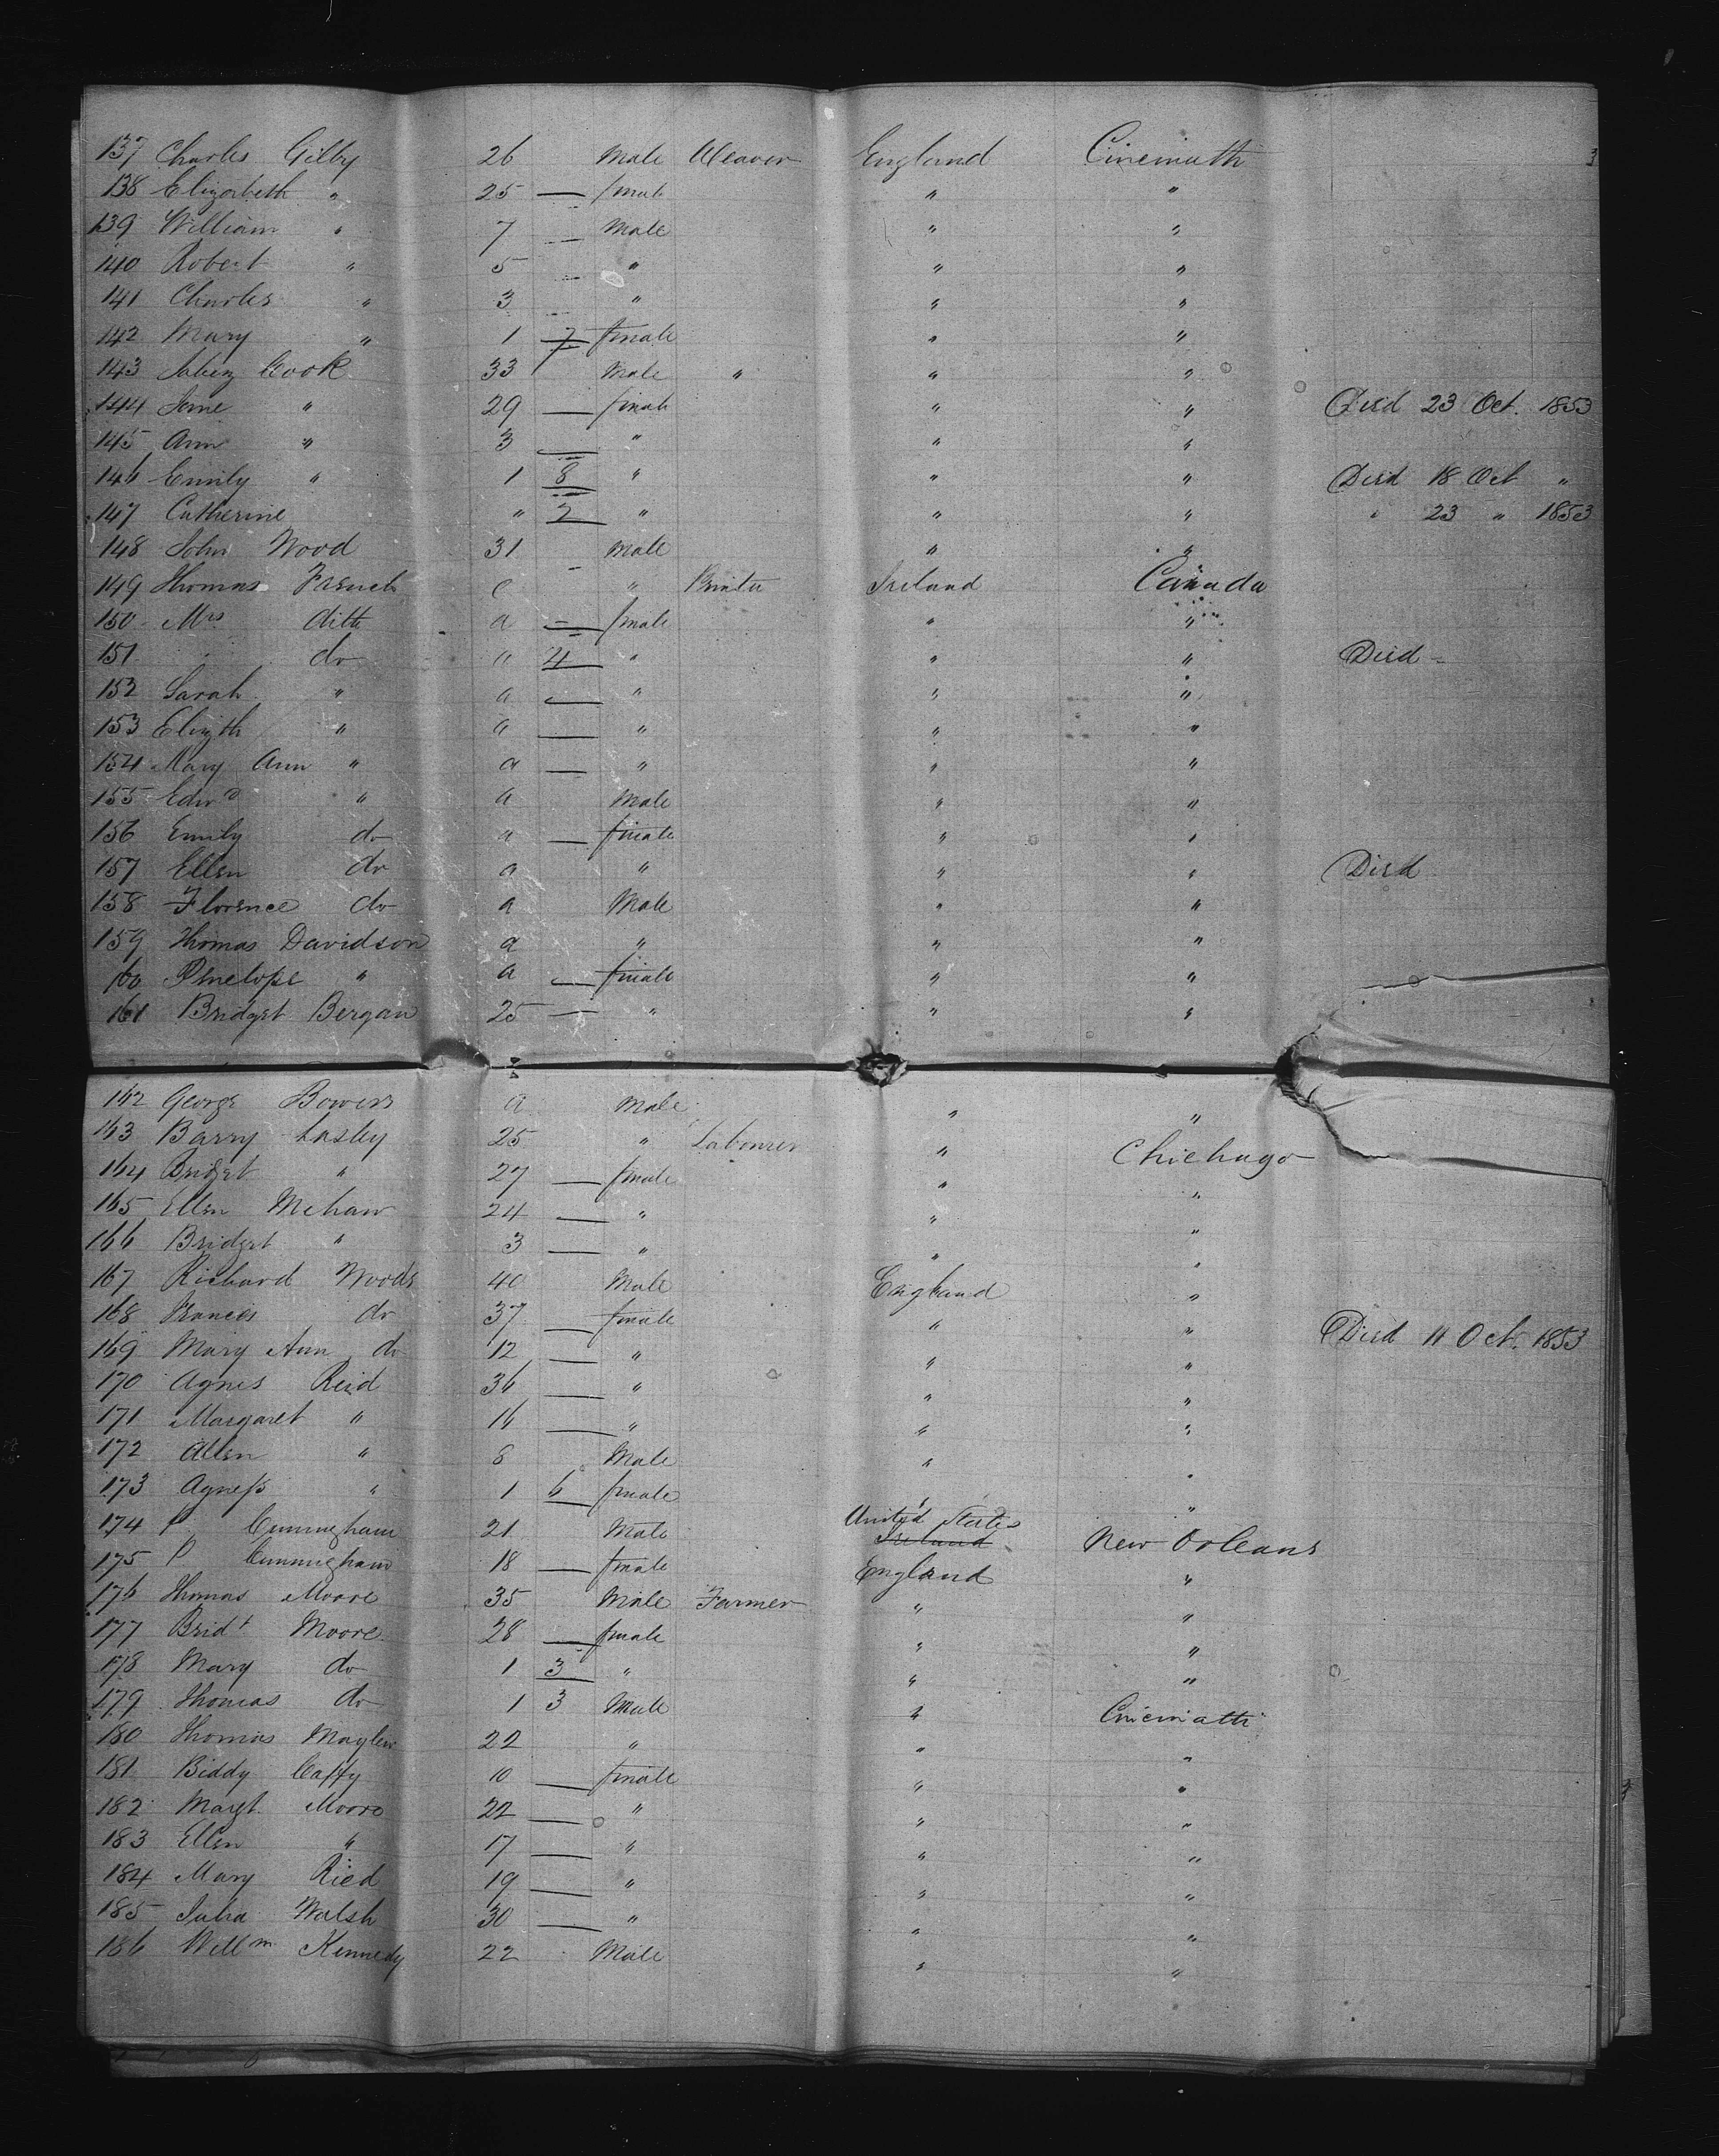 3
137 Charles Gilby 26 Male Weaver England Cincinnatti
138 Elizabeth " 25 — female " "
139 William " 7 — Male " "
140 Robert " 5 " " "
141 Charles " 3 " " "
142 Mary " 1 7 female " "
143 Jabez Cook 33 Male " " "
144 Jane " 29 — female " " Died 23 Oct. 1853
145 Ann " 3 — " " "
146 Emily " 1 8 " " " Died 18 Oct "
147 Catherine " 2 " " " " 23 " 1853
148 John Wood 31 Male " "
149 Thomas French " Ireland Canada
150 Mrs ditto a — female " "
151 " do a 4 " " " Died
152 Sarah " a — " " "
153 Elizth " a — " " "
154 Mary Ann " a — " " "
155 Edwd " a Male " "
156 Emily do a — female " "
157 Ellen do a " " " Died
158 Florence do a Male " "
159 Thomas Davidson a " " "
160 Penelope " a — female " "
161 Bridget Bergan 25 — " " "
162 George Bowers a Male " "
163 Barry Lasley 25 " Labourer " Chichago
164 Bridget " 27 — female " "
165 Ellen Mehan 24 — " " "
166 Bridget " 3 — " " "
167 Richard Woods 40 Male England "
168 Frances do 37 — female " " Died 11 Oct. 1853
169 Mary Ann do 12 — " " "
170 Agnes Reid 36 — " " "
171 Margaret " 16 — " " "
172 Allen " 8 Male " "
173 Agness " 1 6 female " "
174 P Cunningham 21 Male United States Ireland New Orleans
175 P Cunningham 18 — female England "
176 Thomas Moore 35 Male Farmer " "
177 Bridt Moore 28 — female " "
178 Mary do 1 3 " " "
179 Thomas do 1 3 Male " Cincinatti
180 Thomas 22 " " "
181 Biddy Caffy 10 — female " "
182 Margt. Moore 22 — " " "
183 Ellen " 17 — " " "
184 Mary Ried 19 — " " "
185 Julia Walsh 30 — " " "
186 Willm Kennedy 22 Male " "